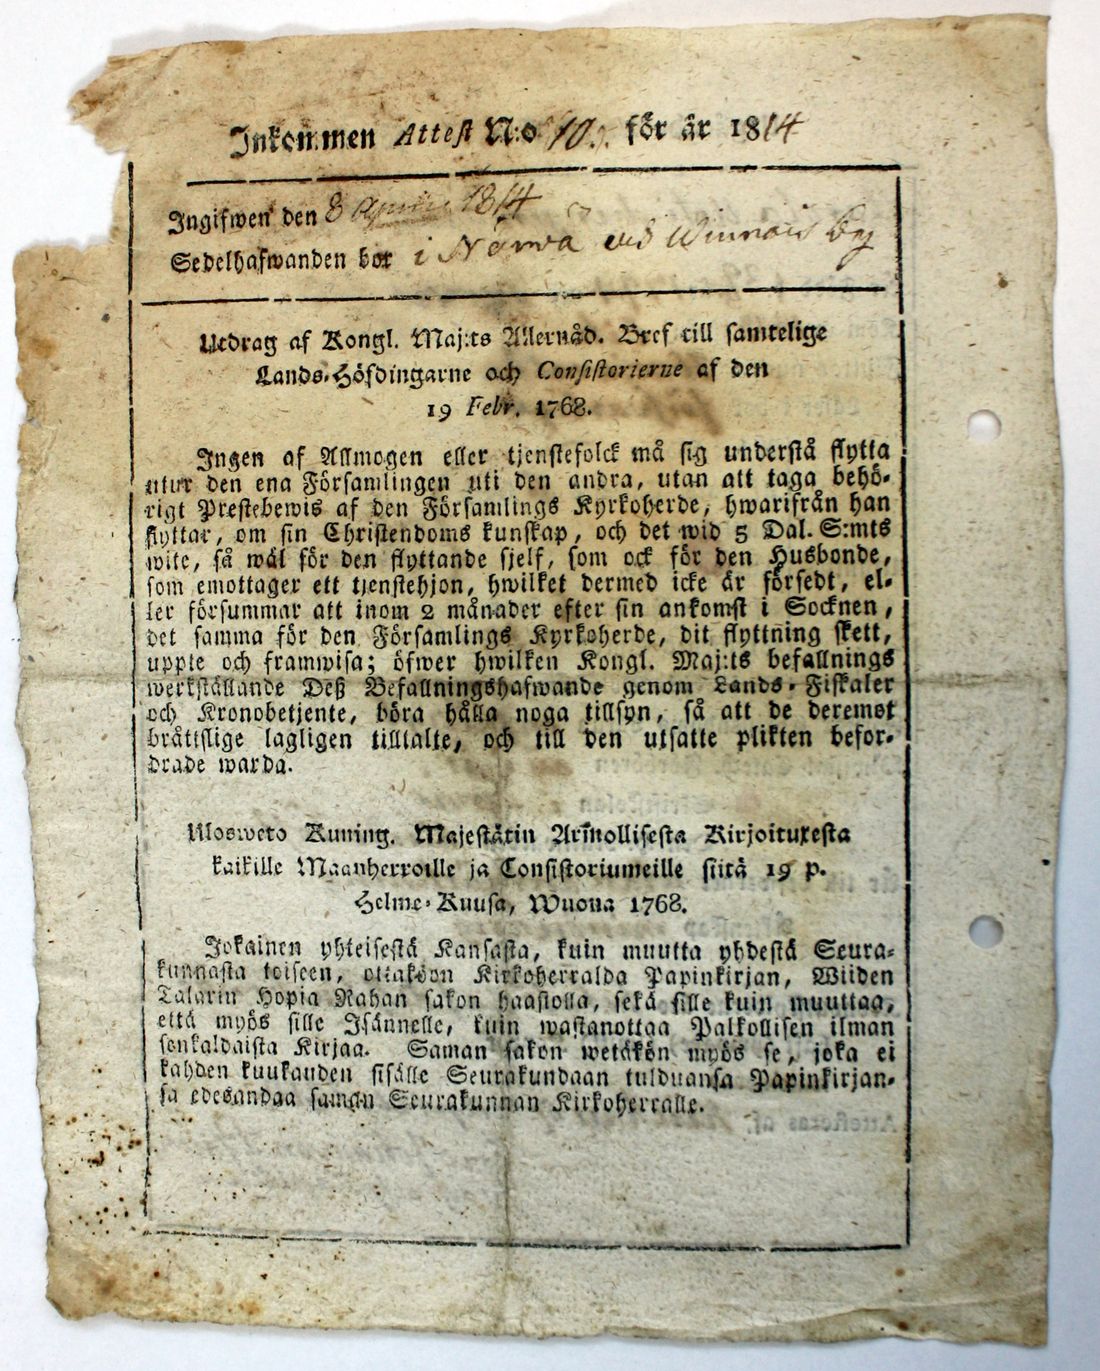 Inkommen Attest N:o 10. för år 1814
Ingifwen den 8 April 1814
Sedelhafwanden bor i Närwä vid by
Utdrag af Kongl. Maj:ts Allernåd. Bref till samtelige
Lands-Höfdingarne och Consistorierne af den
19 Febr. 1768.
Ingen af Allmogen eller tjenstefolck må sig understå flytta
utur den ena Församlingen uti den andra, utan att taga behö-
rigt Prestebewis af den Församlings Kyrkoherde, hwarifrån han
flyttar, om sin Christendoms kunskap, och det wid 5 Dal. S:mts
wite, så wäl för den flyttande sjelf, som ock för den Husbonde,
som emottager ett tjenstehjon, hwilket dermed icke är försedt, el-
ler försummar att inom 2 månader efter sin ankomst i Socknen,
det samma för den Församlings Kyrkoherde, dit flyttning skett,
uppte och framwisa; öfwer hwilken Kongl. Maj:ts befallnings
werkställande Deß Befallningshafwande genom Lands-Fiskaler
och Kronobetjente, böra hålla noga tillsyn, så att de deremot
bråttslige lagligen tilltalte, och till den utsatte plikten befor-
drade warda.
Ulosweto Kuning. Majestätin Armollisesta Kirjoituxesta
kaikille Maanherroille ja Consistoriumeille siitä 19 p.
Helme-Kuusa, Wuona 1768.
Jokainen yhteisestä Kansasta, kuin muutta yhdestä Seura-
kunnasta toiseen, ottakoon Kirkoherralda Papinkirjan, Wiiden
Talarin Hopia Rahan sakon haastolla, sekä sille kuin muuttaa,
että myös sille Isännelle, kuin wastanottaa Palkollisen ilman
senkaldaista Kirjaa. Saman sakon wetäkön myös se, joka ei
kahden kuukauden sisälle Seurakundaan tulduansa Papinkirjan-
sa edesandaa saman Seurakunnan Kirkoherralle.